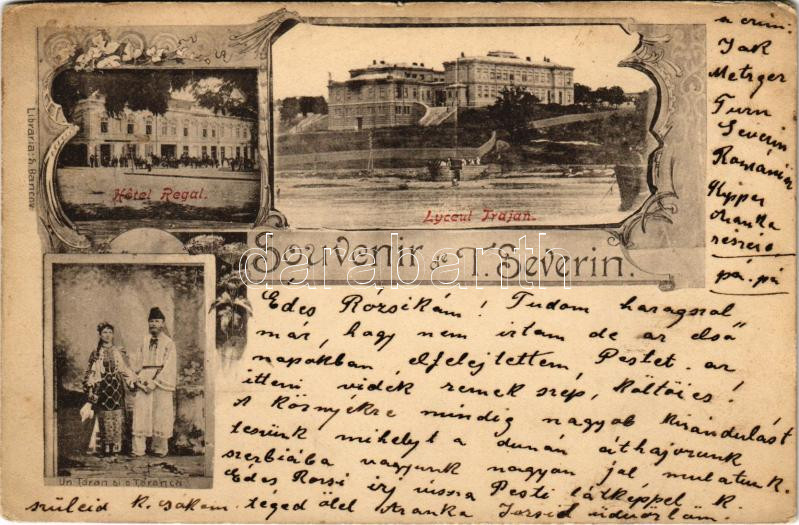 Hôtel Regal.
Lyceul Trajan.
Souvenir de T. Severin.
darabanth.com
Un Țăran si o Țăranca
a czim:
Jak
Metzger
Turn
Severin
Románia
Aranka
részére
pá. pá
Edes Rózsikám! Tudom haragszol
már, hogy nem irtam de az első
napokban, elfelejtettem, Pestet. az
itteni vidék remek szép, költői es!
A környékre mindig nagyob kirándulást
teszünk mihelyt a dunán áthajozunk
szerbiába vagyunk nagyon jol mulatunk.
Edes Rozsi irj vissza Pesti látképpel k.
szüleid k. téged ölel Aranka üdvözlöm